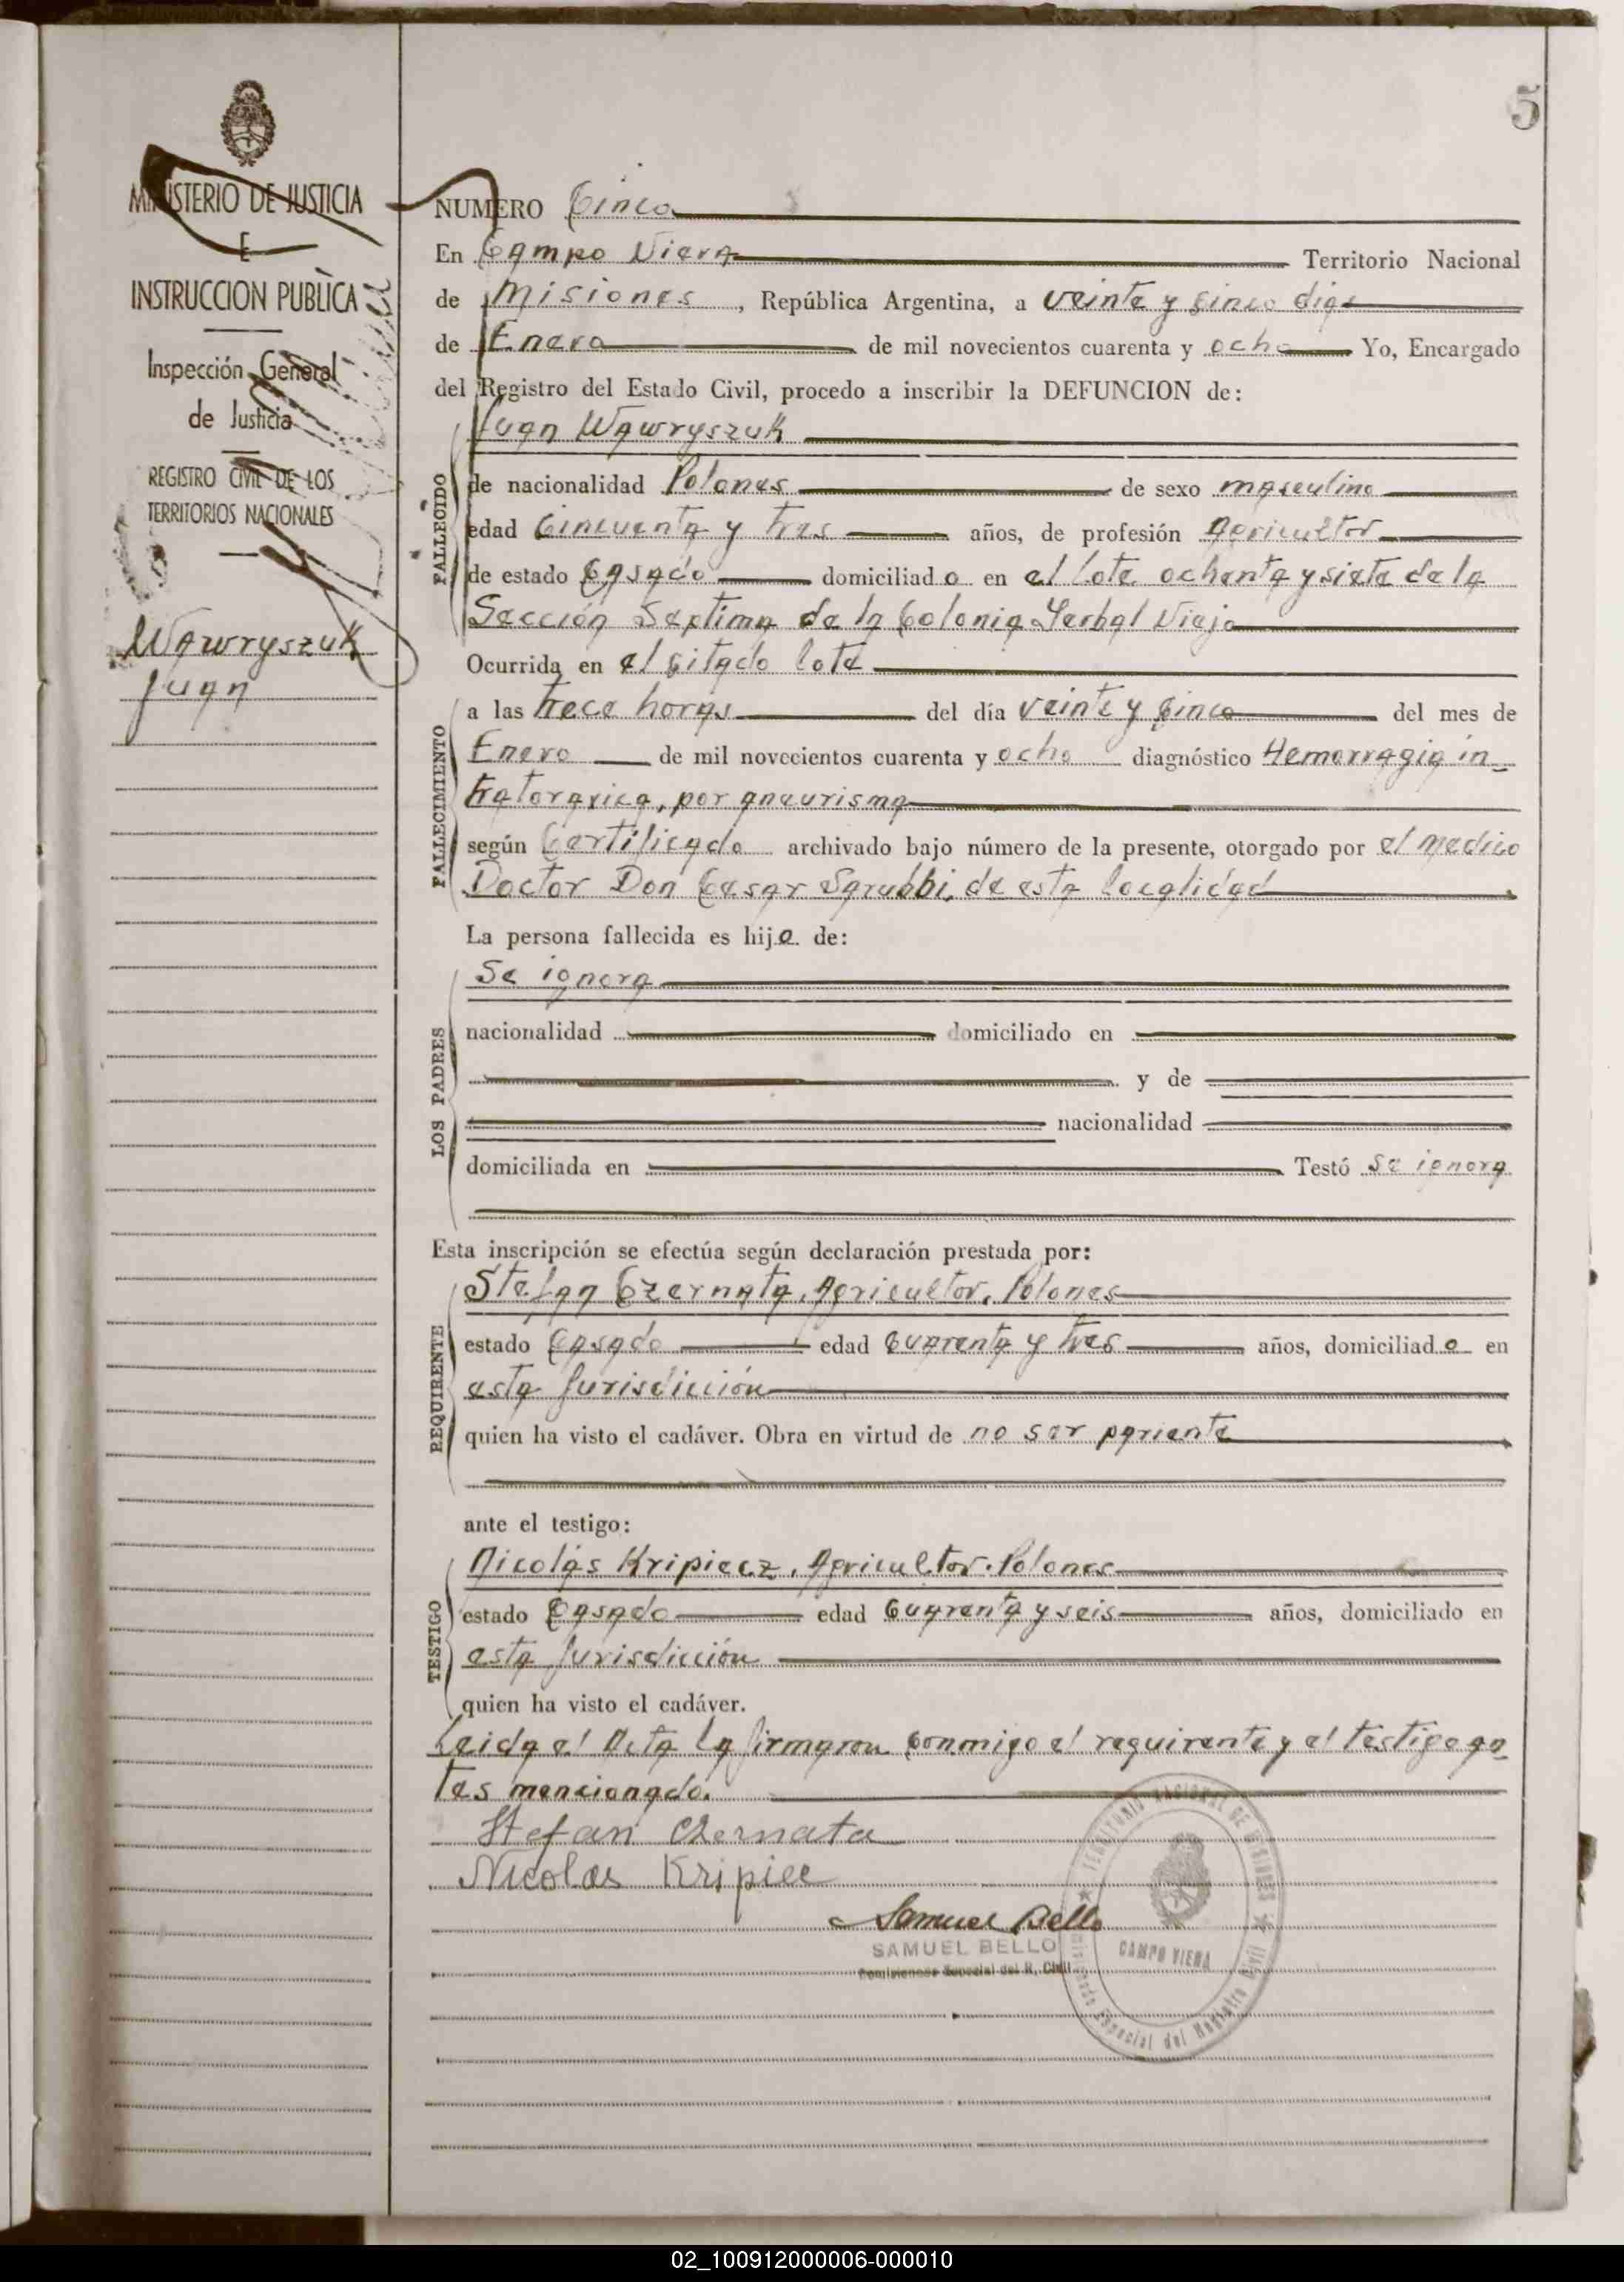 5
MINISTERIO DE JUSTICIA
E
INSTRUCCION PUBLICA
Inspección General
de Justicia
REGISTRO CIVIL DE LOS
TERRITORIOS NACIONALES
Wawryszuk
Juan
NUMERO Cinco
En Campo Viera Territorio Nacional
de Misiones, República Argentina, a veinte y cinco dias
de Enero de mil novecientos cuarenta y ocho Yo, Encargado
del Registro del Estado Civil, procedo a inscribir la DEFUNCION de:
FALLECIDO
Juan Wawryszuk
de nacionalidad Polones de sexo masculino
edad Cincuenta y tres años, de profesión Agricultor
de estado Casado domiciliado en el lote ochenta y siete de la
Sección Septima de la Colonia Yerbal Viejo
Ocurrida en el citado lote
FALLECIMIENTO
a las trece horas del día veinte y cinco del mes de
Enero de mil novecientos cuarenta y ocho diagnóstico Hemorragia in-
tratoraxica, por aneurisma
según Certificado archivado bajo número de la presente, otorgado por el medico
Doctor Don Cesar Sarubbi, de esta localidad
La persona fallecida es hijo de:
LOS PADRES
Se ignora
nacionalidad domiciliado en
y de
nacionalidad
domiciliada en Testó Se ignora
Esta inscripción se efectúa según declaración prestada por:
REQUIRENTE
Stefan Czernata, Agricultor, Polones
estado Casado edad cuarenta y tres años, domiciliado en
esta Jurisdicción
quien ha visto el cadáver. Obra en virtud de no ser pariente
ante el testigo:
TESTIGO
Nicolás Kripiecz, Agricultor. Polones
estado Casado edad Cuarenta y seis años, domiciliado en
esta Jurisdicción
quien ha visto el cadáver.
Leida el Acta la firmaron conmigo el requirente y el testigo an-
tes mencionado.
Stefan Czernata
Nicolas Kripiec
Samuel Bello
SAMUEL BELLO
Comisionado Especial del R. Civil
TERRITORIO NACIONAL DE MISIONES
CAMPO VIERA
Comisionado Especial del Registro Civil
02_100912000006-000010